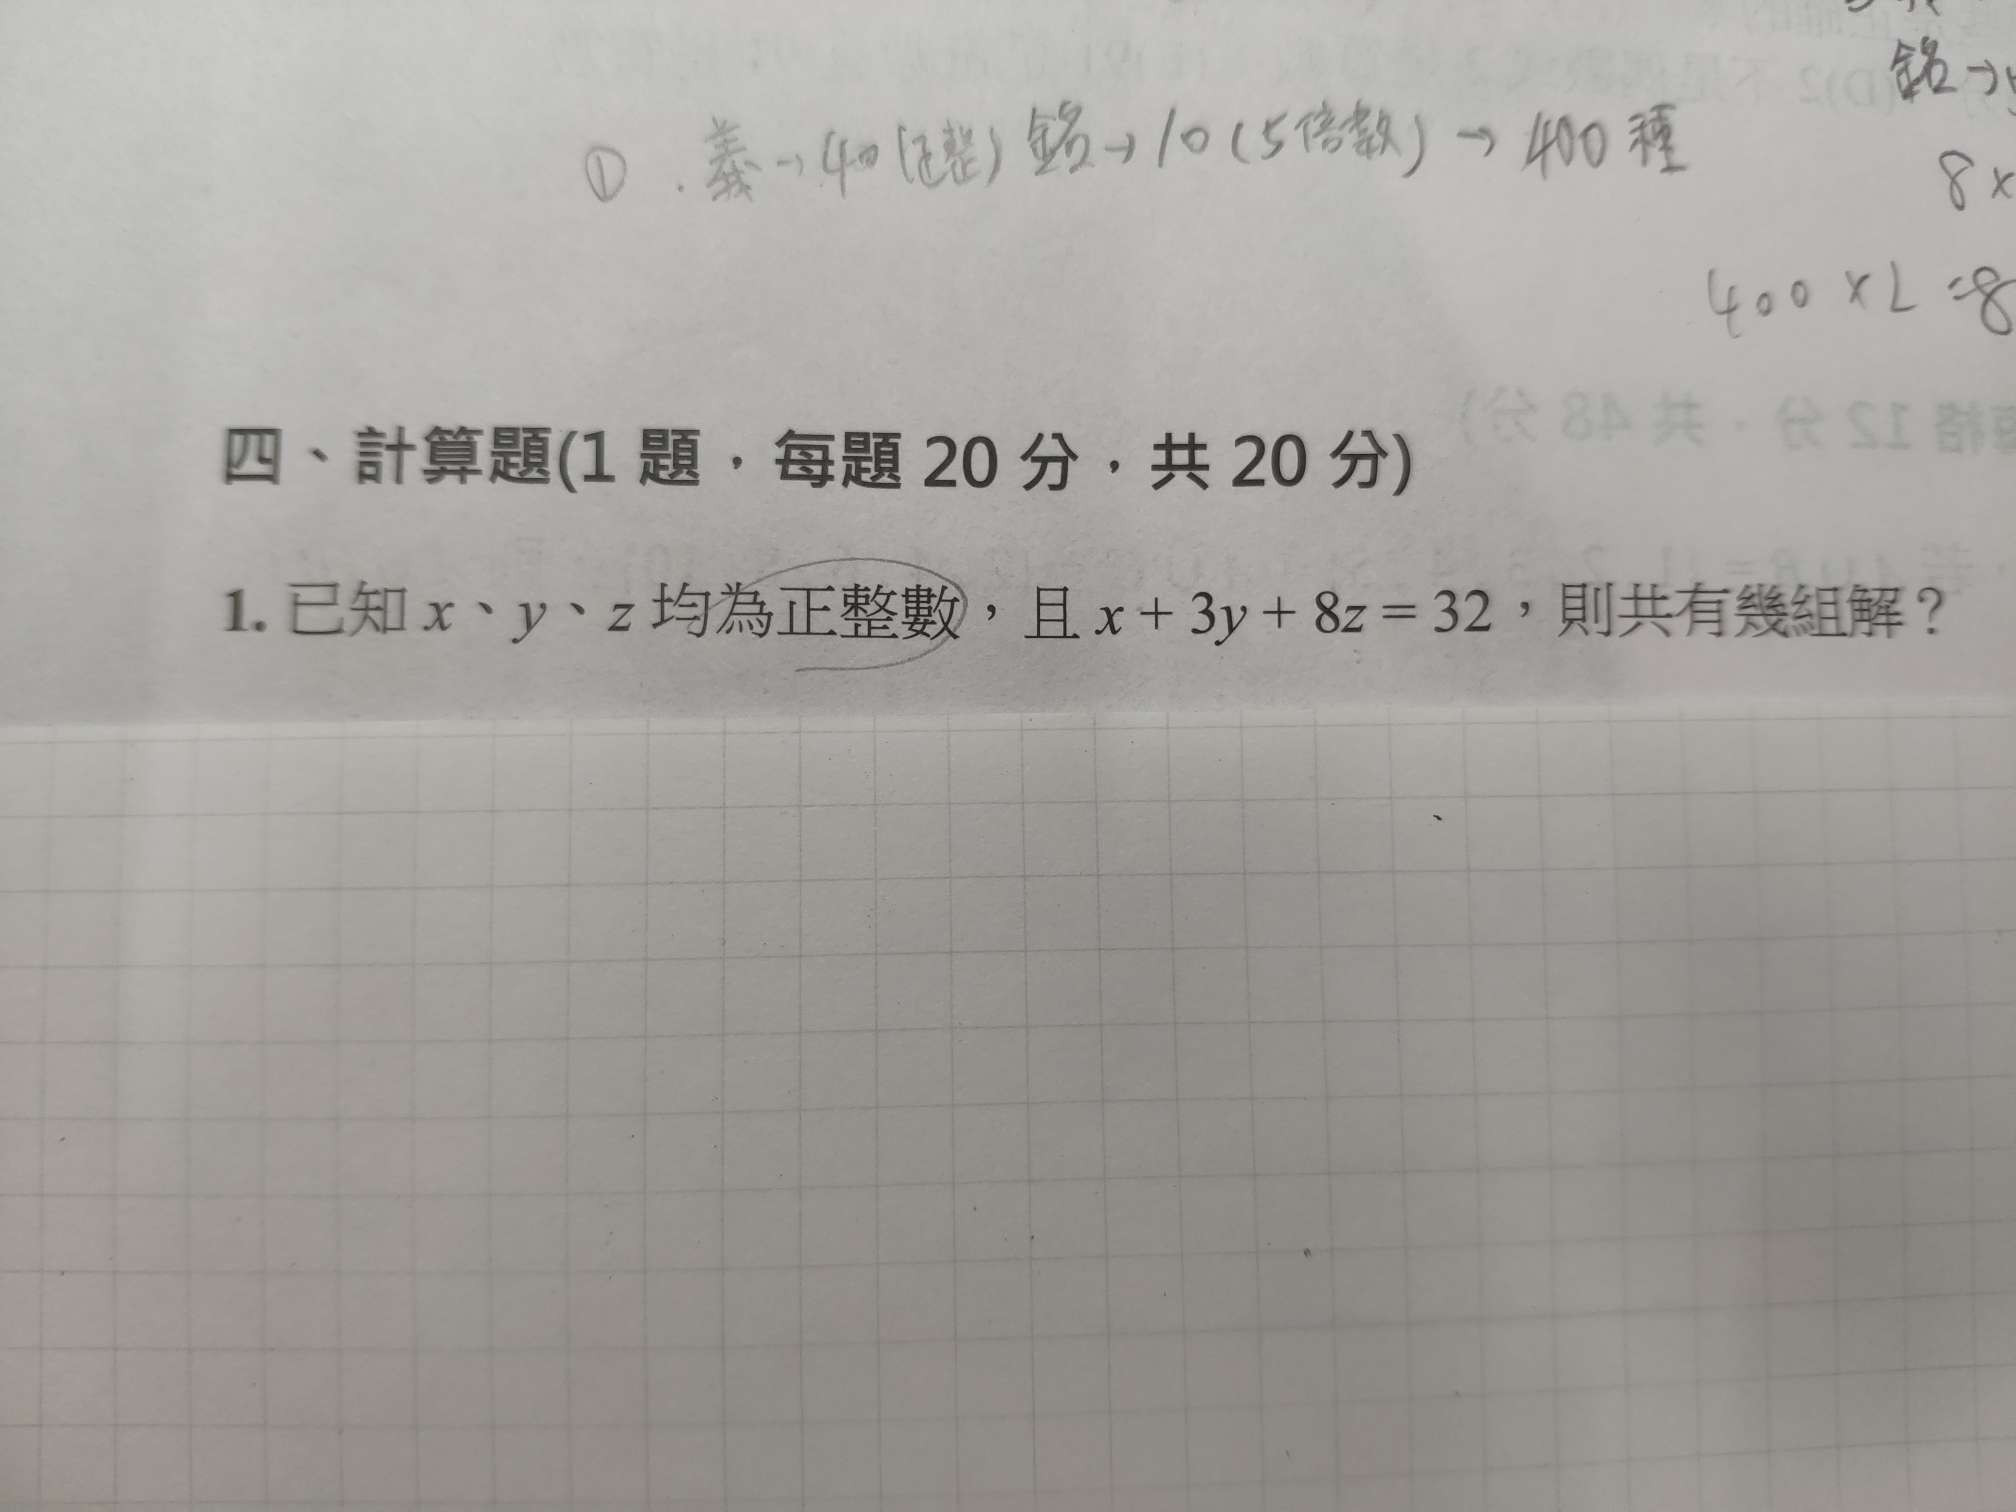 鉻→
① . 義→40(正整) 鉻→10(5倍數)→400種
8×
400×2=8
四、計算題(1 題，每題 20 分，共 20 分)
1. 已知 x、y、z 均為正整數，且 x + 3y + 8z = 32，則共有幾組解？